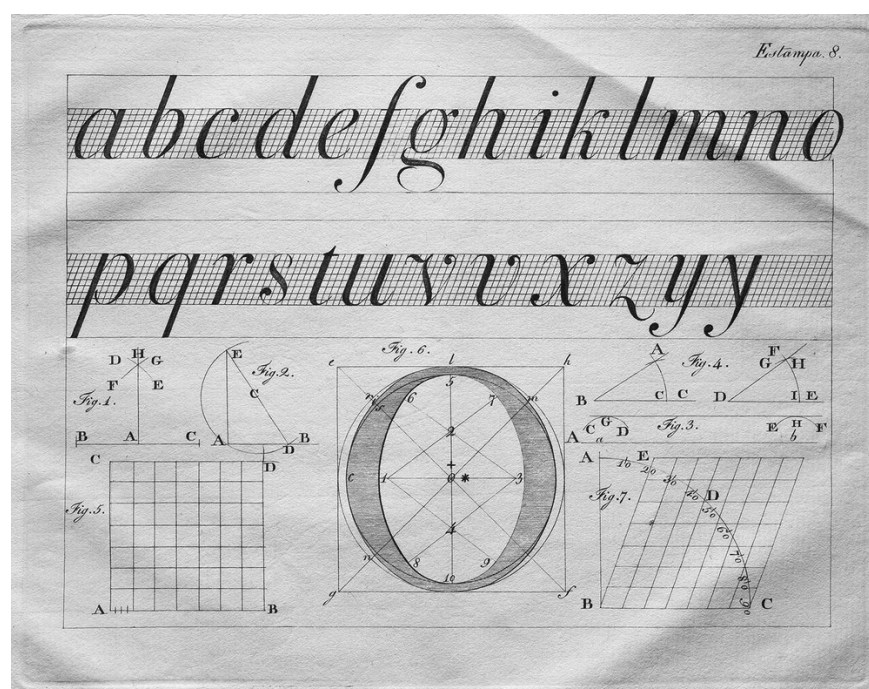 Estampa. 8.
a b c d e f g h i k l m n o
p q r s t u v v x z y y
Fig. 1.
D H G
F E
B A C
Fig. 2.
E
C
A D B
Fig. 6.
e l h
5
r 6 7 m
2
+
c 1 0 * 3
4
n 8 9
10
g f
Fig. 4.
A
B C C
F
G H
D I E
Fig. 3.
A C G D
a
E H F
b
Fig. 5.
C D
A B
Fig. 7.
A E
10 20 30 40 D 50 60 70 80 90
B C